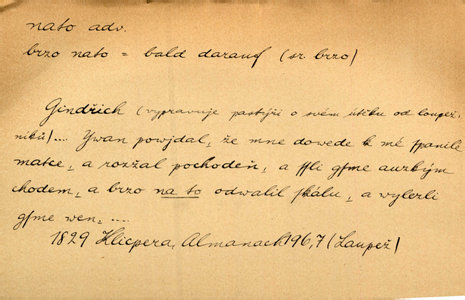 nato adv.
brzo nato = bald darauf (sr. brzo)
Gindřich (vypravuje pastýři o svém útěku od loupež-
níků).... Ywan powjdal, že mne dowede k mé spanilé
matce, a rozžal pochodeň, a ssli gsme auzkým
chodem, a brzo na to odwalil skálu, a vylezli
gsme wen, ....
1829 Klicpera, Almanach 196,7 (Laupež)